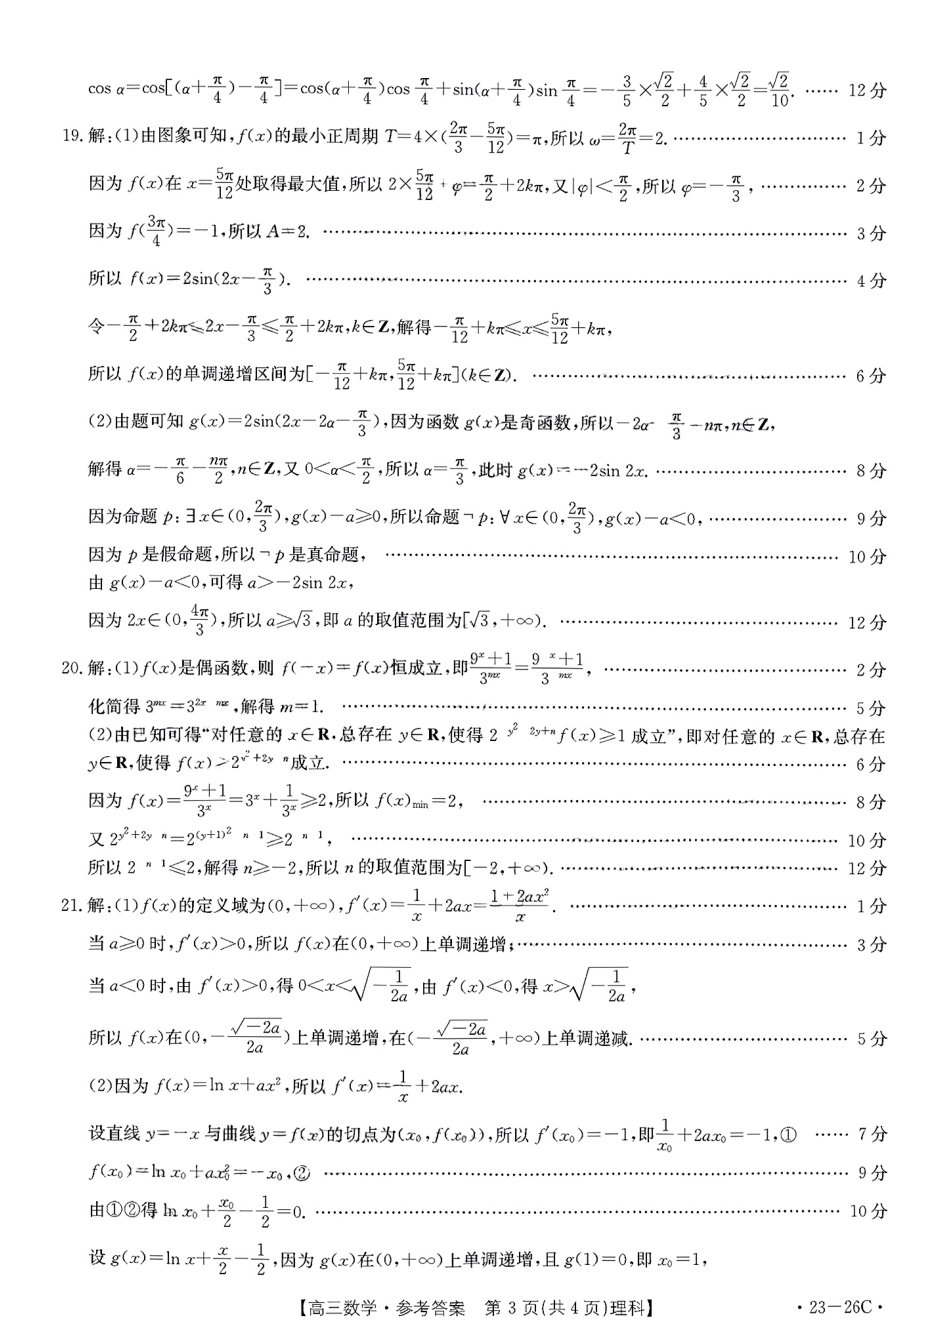 cos α=cos[(α+π/4)-π/4]=cos(α+π/4)cos π/4+sin(α+π/4)sin π/4=-3/5×√2/2+4/5×√2/2=√2/10. …… 12分
19.解:(1)由图象可知,f(x)的最小正周期 T=4×(2π/3-5π/12)=π,所以 ω=2π/T=2. …… 1分
因为 f(x)在 x=5π/12处取得最大值,所以 2×5π/12+φ=π/2+2kπ,又|φ|<π/2,所以 φ=-π/3, …… 2分
因为 f(3π/4)=-1,所以 A=2. …… 3分
所以 f(x)=2sin(2x-π/3). …… 4分
令-π/2+2kπ≤2x-π/3≤π/2+2kπ,k∈Z,解得-π/12+kπ≤x≤5π/12+kπ,
所以 f(x)的单调递增区间为[-π/12+kπ,5π/12+kπ](k∈Z). …… 6分
(2)由题可知 g(x)=2sin(2x-2α-π/3),因为函数 g(x)是奇函数,所以-2α-π/3=nπ,n∈Z,
解得 α=-π/6-nπ/2,n∈Z,又 0<α<π/2,所以 α=π/3,此时 g(x)=-2sin 2x. …… 8分
因为命题 p:∃x∈(0,2π/3),g(x)-a≥0,所以命题¬p:∀x∈(0,2π/3),g(x)-a<0, …… 9分
因为 p 是假命题,所以¬p 是真命题, …… 10分
由 g(x)-a<0,可得 a>-2sin 2x,
因为 2x∈(0,4π/3),所以 a≥√3,即 a 的取值范围为[√3,+∞). …… 12分
20.解:(1)f(x)是偶函数,则 f(-x)=f(x)恒成立,即(9^x+1)/3^(mx)=(9^(-x)+1)/3^(-mx), …… 2分
化简得 3^(mx)=3^(2x-mx),解得 m=1. …… 5分
(2)由已知可得“对任意的 x∈R,总存在 y∈R,使得 2^(-y²-2y+n)f(x)≥1 成立”,即对任意的 x∈R,总存在
y∈R,使得 f(x)≥2^(y²+2y-n)成立. …… 6分
因为 f(x)=(9^x+1)/3^x=3^x+1/3^x≥2,所以 f(x)min=2, …… 8分
又 2^(y²+2y-n)=2^((y+1)²-n-1)≥2^(-n-1), …… 10分
所以 2^(-n-1)≤2,解得 n≥-2,所以 n 的取值范围为[-2,+∞). …… 12分
21.解:(1)f(x)的定义域为(0,+∞),f′(x)=1/x+2ax=(1+2ax²)/x. …… 1分
当 a≥0 时,f′(x)>0,所以 f(x)在(0,+∞)上单调递增; …… 3分
当 a<0 时,由 f′(x)>0,得 0<x<√(-1/2a),由 f′(x)<0,得 x>√(-1/2a),
所以 f(x)在(0,-√(-2a)/2a)上单调递增,在(-√(-2a)/2a,+∞)上单调递减. …… 5分
(2)因为 f(x)=ln x+ax²,所以 f′(x)=1/x+2ax.
设直线 y=-x 与曲线 y=f(x)的切点为(x₀,f(x₀)),所以 f′(x₀)=-1,即1/x₀+2ax₀=-1,① …… 7分
f(x₀)=ln x₀+ax₀²=-x₀,② …… 9分
由①②得 ln x₀+x₀/2-1/2=0. …… 10分
设 g(x)=ln x+x/2-1/2,因为 g(x)在(0,+∞)上单调递增,且 g(1)=0,即 x₀=1,
【高三数学·参考答案 第 3 页(共 4 页)理科】 ·23-26C·